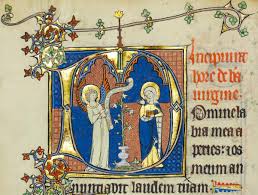 Incipiunt
hore de bã
uirgine
Domine la
bia mea a
peries: ⁊ os
meum an
nuntiabit laudem tuam